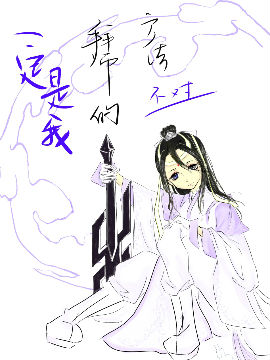 一定是我
拜师的
方法
不对